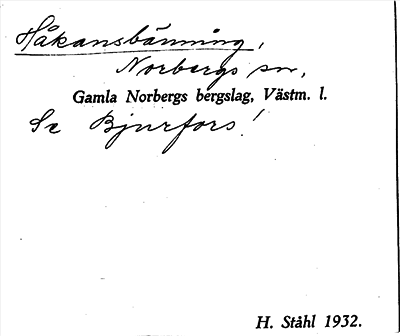 Håkansbänning,
Norbergs sn,
Gamla Norbergs bergslag, Västm. l.
Se Bjurfors!
H. Ståhl 1932.